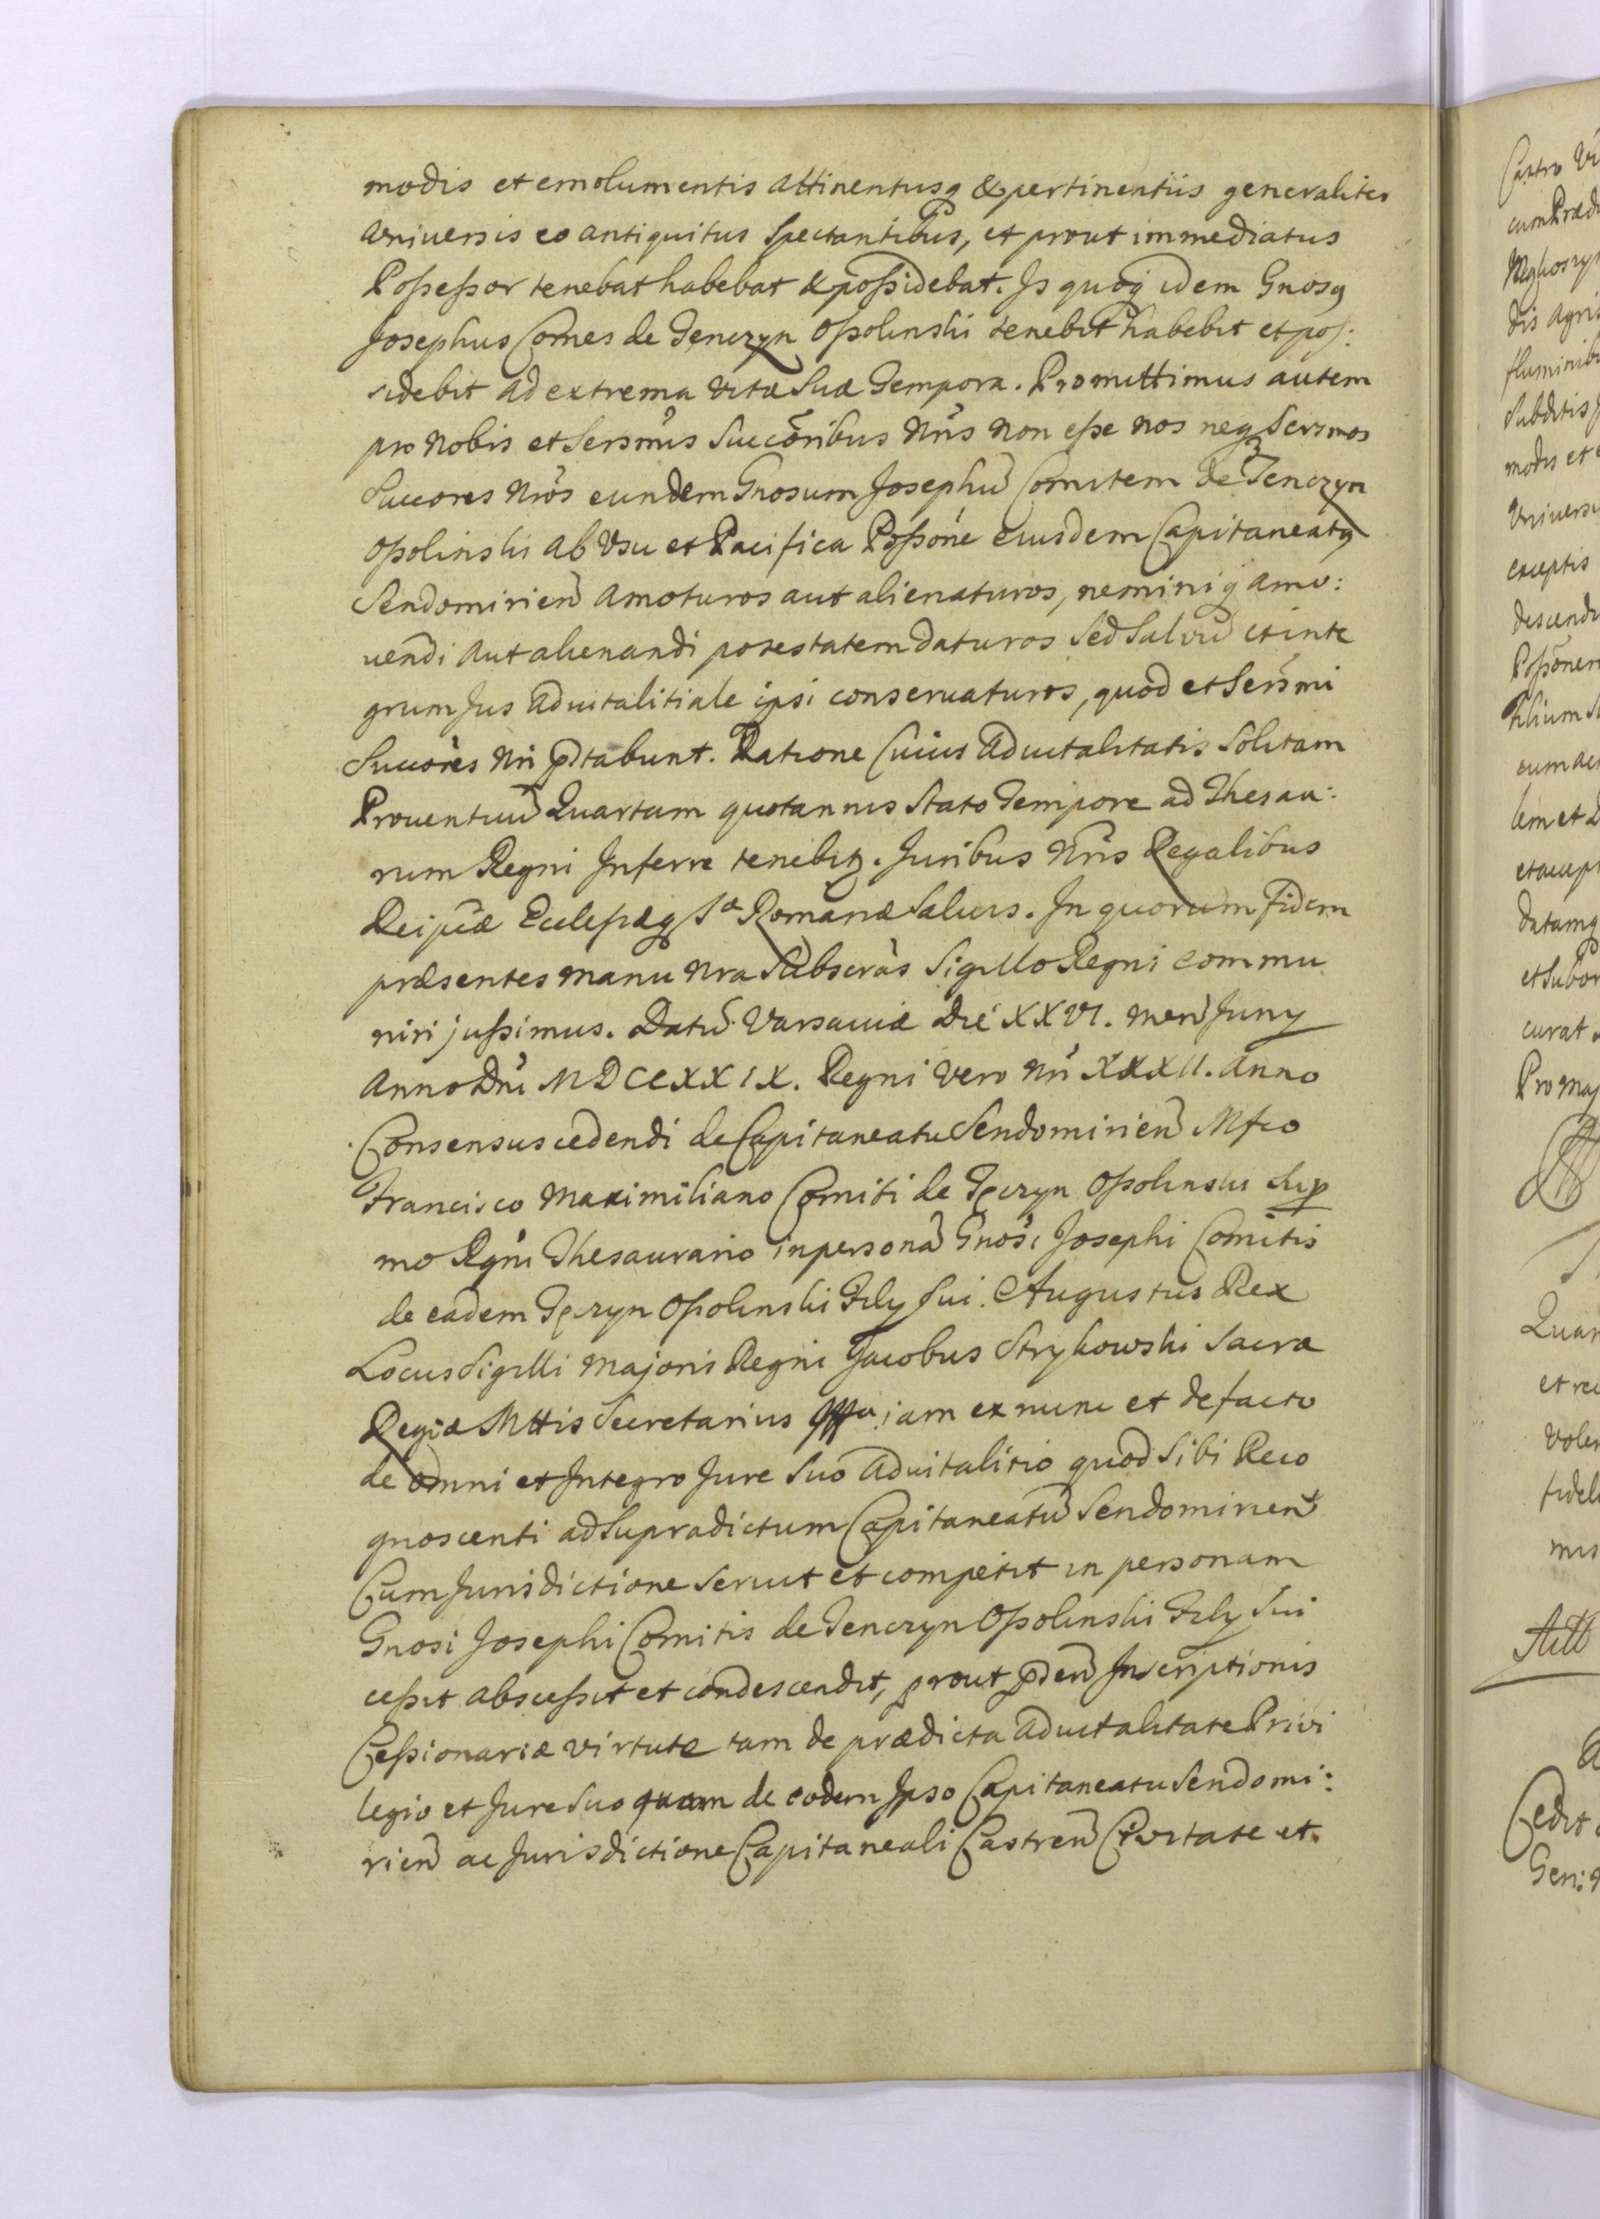 modis et emolumentis attinentusq & pertinentiis generaliter
universis eo antiquitus spectantibus, et prout immediatus
Possessor tenebat habebat & possidebat. Is quoq idem Gnosq
Josephus Comes de Tenczyn Ossolinski tenebit habebit et pos:
sidebit ad extrema vitæ suæ Tempora. Promittimus autem
pro Nobis et Sersmis Succoribus Nris non esse nos neq Sersmos
Succores Nros eundem Gnosum Josephu Comitem de Tenczyn
Ossolinski ab Usu et Pacifica Possone eiusdem Capitaneatq
Sendomirien amoturos aut alienaturos, neminiq amo:
uendi aut alienandi potestatem daturos Sed Salvu et inte
grum Jus aduitalitiale ipsi conseruaturos, quod et Sersmi
Succores Nri pstabunt. Ratione Cuius Aduitalitatis Solitam
Prouentuu Quartam quotannis Stato Tempore ad Thesau:
rum Regni Inferre tenebit. Juribus Nris Regalibus
Reipcæ Ecclesiæq Sæ Romanæ Saluis. In quorum Fidem
præsentes manu nra Subscras Sigillo Regni commu
niri jussimus. Datu Varsauiæ Die XXVI. men Juny
Anno Dni MDCCXXIX. Regni vero Nri XXXII. Anno
Consensus cedendi de Capitaneatu Sendomirien Mfco
Francisco Maximiliano Comiti de Tęczyn Ossolinski Sup
mo Rgni Thesaurario in persona Gnosi Josephi Comitis
de eadem Tęczyn Ossolinski Fily Sui. Augustus Rex
Locus Sigilli Majoris Regni Jacobus Strykowski Sacræ
Regiæ Mttis Secretarius iam ex nunc et de facto
de omni et Integro Jure Suo aduitalitio quod Sibi Reco
gnoscenti ad Supradictum Capitaneatu Sendomirien
Cum Jurisdictione seruit et competit in personam
Gnosi Josephi Comitis de Tenczyn Ossolinski Fily Sui
cessit abscessit et condescendit, prout pden Inscriptionis
Cessionariæ virtute tam de prædicta aduitalitate Privi
legio et Jure Suo quam de eodem Ipso Capitaneatu Sendomi:
rien ac Jurisdictione Capitaneali Castren Civitate et